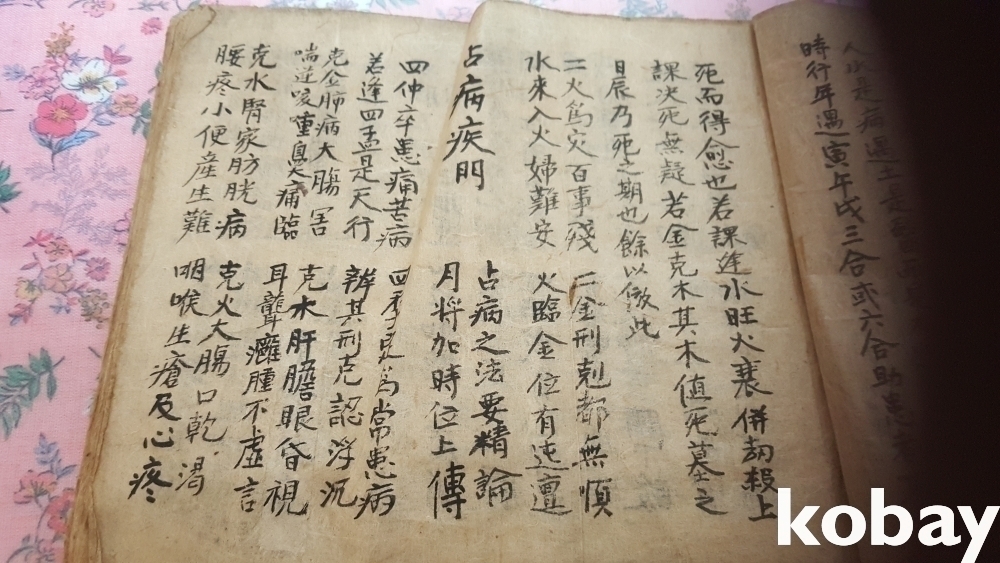 時行年遇寅午戌三合或六合助
死而得愈也若課逢水旺火衰併劫殺上
課決死無疑若金克木其木値死墓之
日辰乃死之期也餘以倣此
二火爲灾百事殘 二金刑剋都無順
水來入火婦難安 火臨金位有迍邅
占病疾門
占病之法要精論
月將加時位上傳
四仲卒患痛苦病 四季是爲常患病
若逢四孟是天行 辨其刑克認浮沉
克金肺病大腸害 克水肝膽眼昏視
喘逆咳 痛臨 耳聾癰腫不虛言
克水腎家肪胱病 克火大腸口乾渴
腰疼小便産生難 咽喉生瘡及心疼
kobay